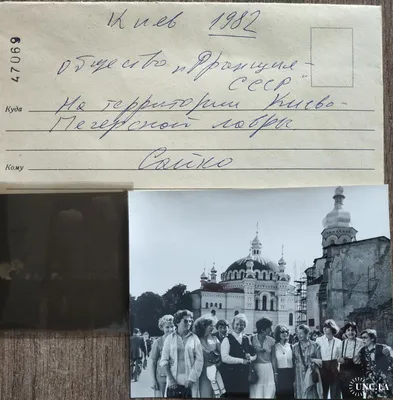 Киев 1982
47069
общество „Франция-
СССР"
Куда На территории Киево-
Печерской лавры
Кому Сойко
UNC.UA